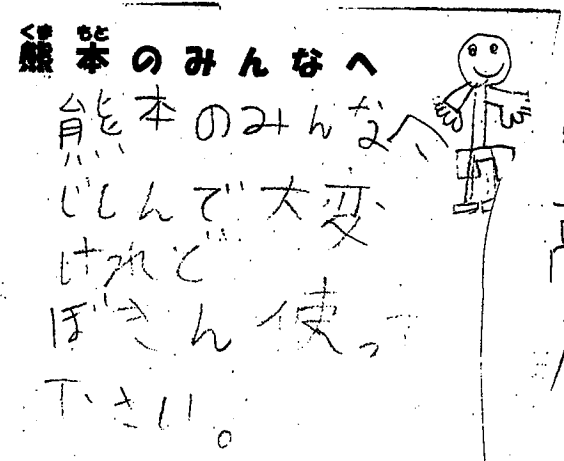 くまもと
熊本のみんなへ
熊本のみんなへ
じしんで大変
けれど
ぼきん使って
下さい。